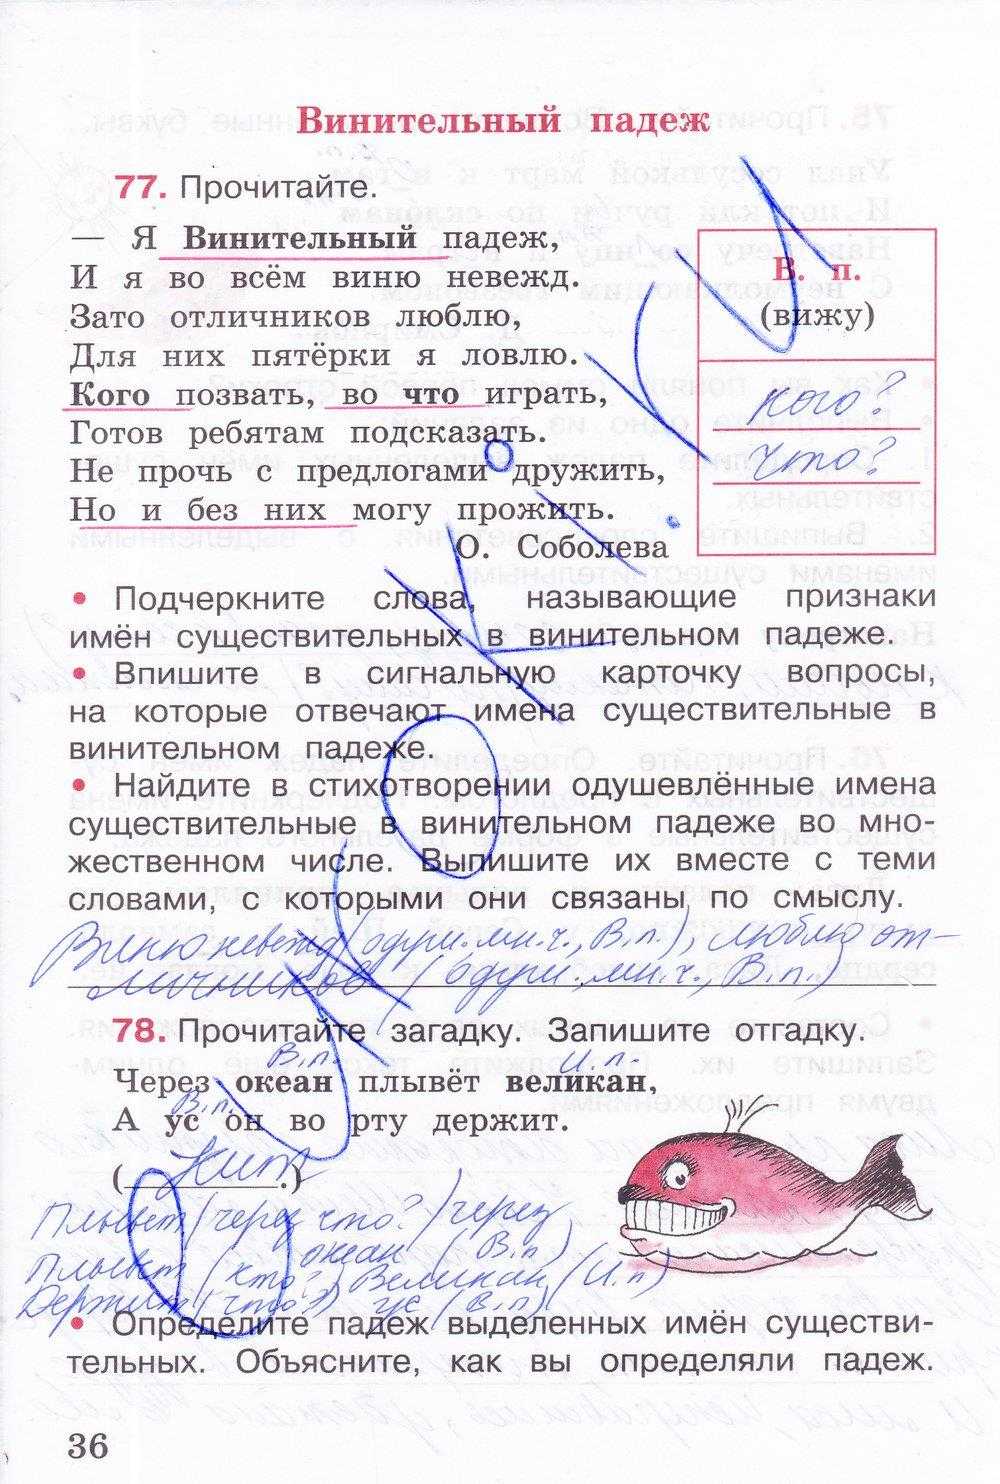 Винительный падеж
77. Прочитайте.
— Я Винительный падеж,
И я во всём виню невежд.
Зато отличников люблю,
Для них пятёрки я ловлю.
Кого позвать, во что играть,
Готов ребятам подсказать.
Не прочь с предлогами дружить,
Но и без них могу прожить.
О. Соболева
В. п.
(вижу)
кого?
что?
• Подчеркните слова, называющие признаки
имён существительных в винительном падеже.
• Впишите в сигнальную карточку вопросы,
на которые отвечают имена существительные в
винительном падеже.
• Найдите в стихотворении одушевлённые имена
существительные в винительном падеже во мно-
жественном числе. Выпишите их вместе с теми
словами, с которыми они связаны по смыслу.
Виню невежд (одуш. мн.ч., В.п.), люблю от-
личников (одуш., мн.ч., В.п.)
78. Прочитайте загадку. Запишите отгадку.
В.п. И.п.
Через океан плывёт великан,
В.п.
А ус он во рту держит.
(Кит.)
Плывет (через что?) через
океан (В.п)
Плывет (кто?) Великан (И.п)
Держит (что?) ус (В.п)
• Определите падеж выделенных имён существи-
тельных. Объясните, как вы определяли падеж.
36